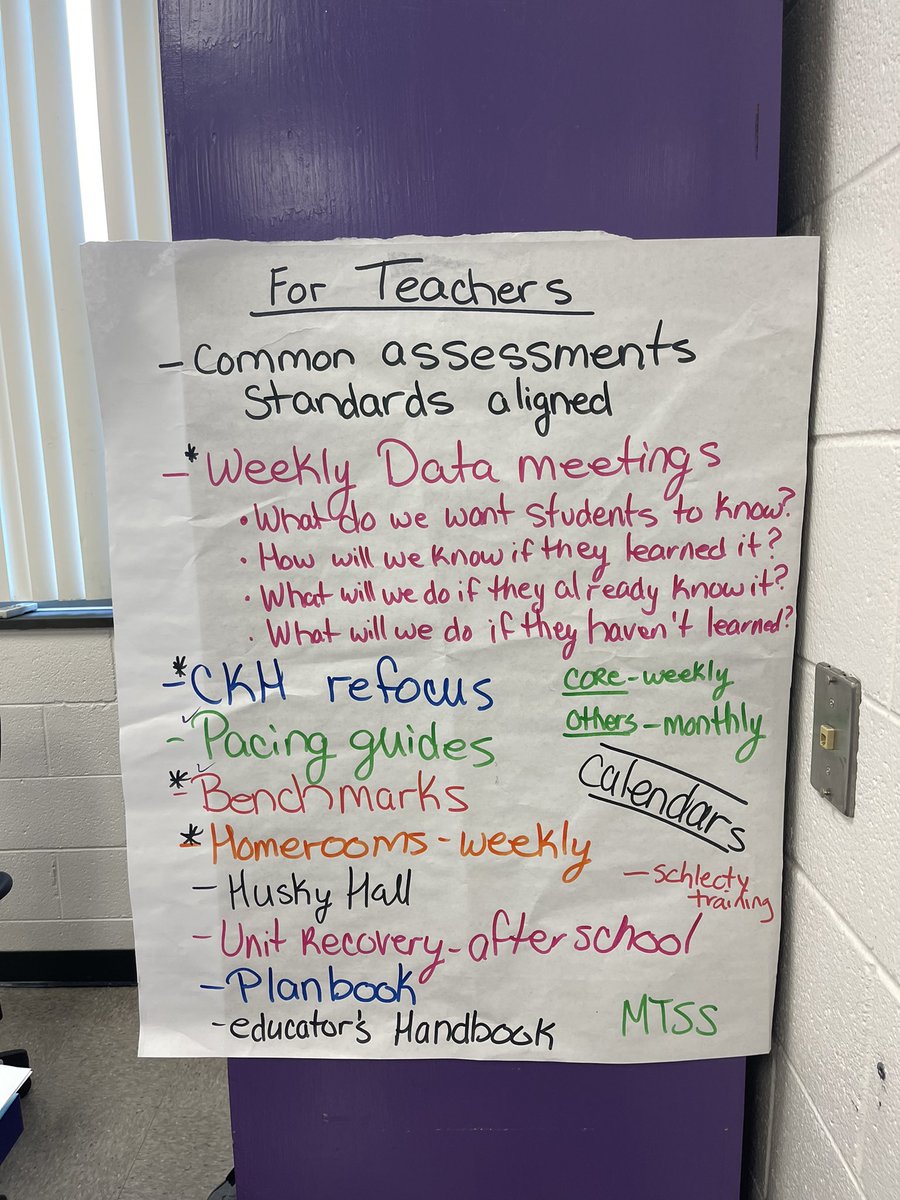 For Teachers
- Common assessments
Standards aligned
- * Weekly Data meetings
• What do we want students to know?
• How will we know if they learned it?
• What will we do if they already know it?
• What will we do if they haven't learned?
- * CKH refocus
core - weekly
- ✓ Pacing guides
others - monthly
- * ✓ Benchmarks
Calendars
- * Homerooms - weekly
- Husky Hall
- Schlecty
training
- Unit Recovery - after school
- Planbook
- educator's Handbook
MTSS